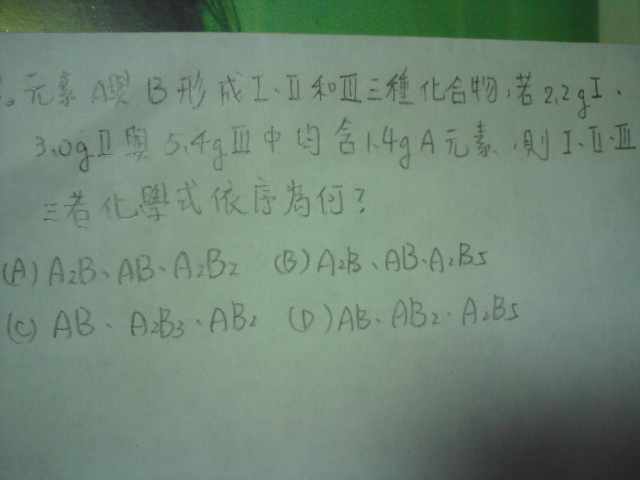 。元素 A與 B 形成 I、II 和 III 三種化合物,若 2.2g I、
3.0g II 與 5.4g III 中均含 1.4g A 元素,則 I、II、III
三者化學式依序為何?
(A) A₂B、AB、A₂B₂ (B) A₂B、AB、A₂B₅
(C) AB、A₂B₃、AB₂ (D) AB、AB₂、A₂B₅